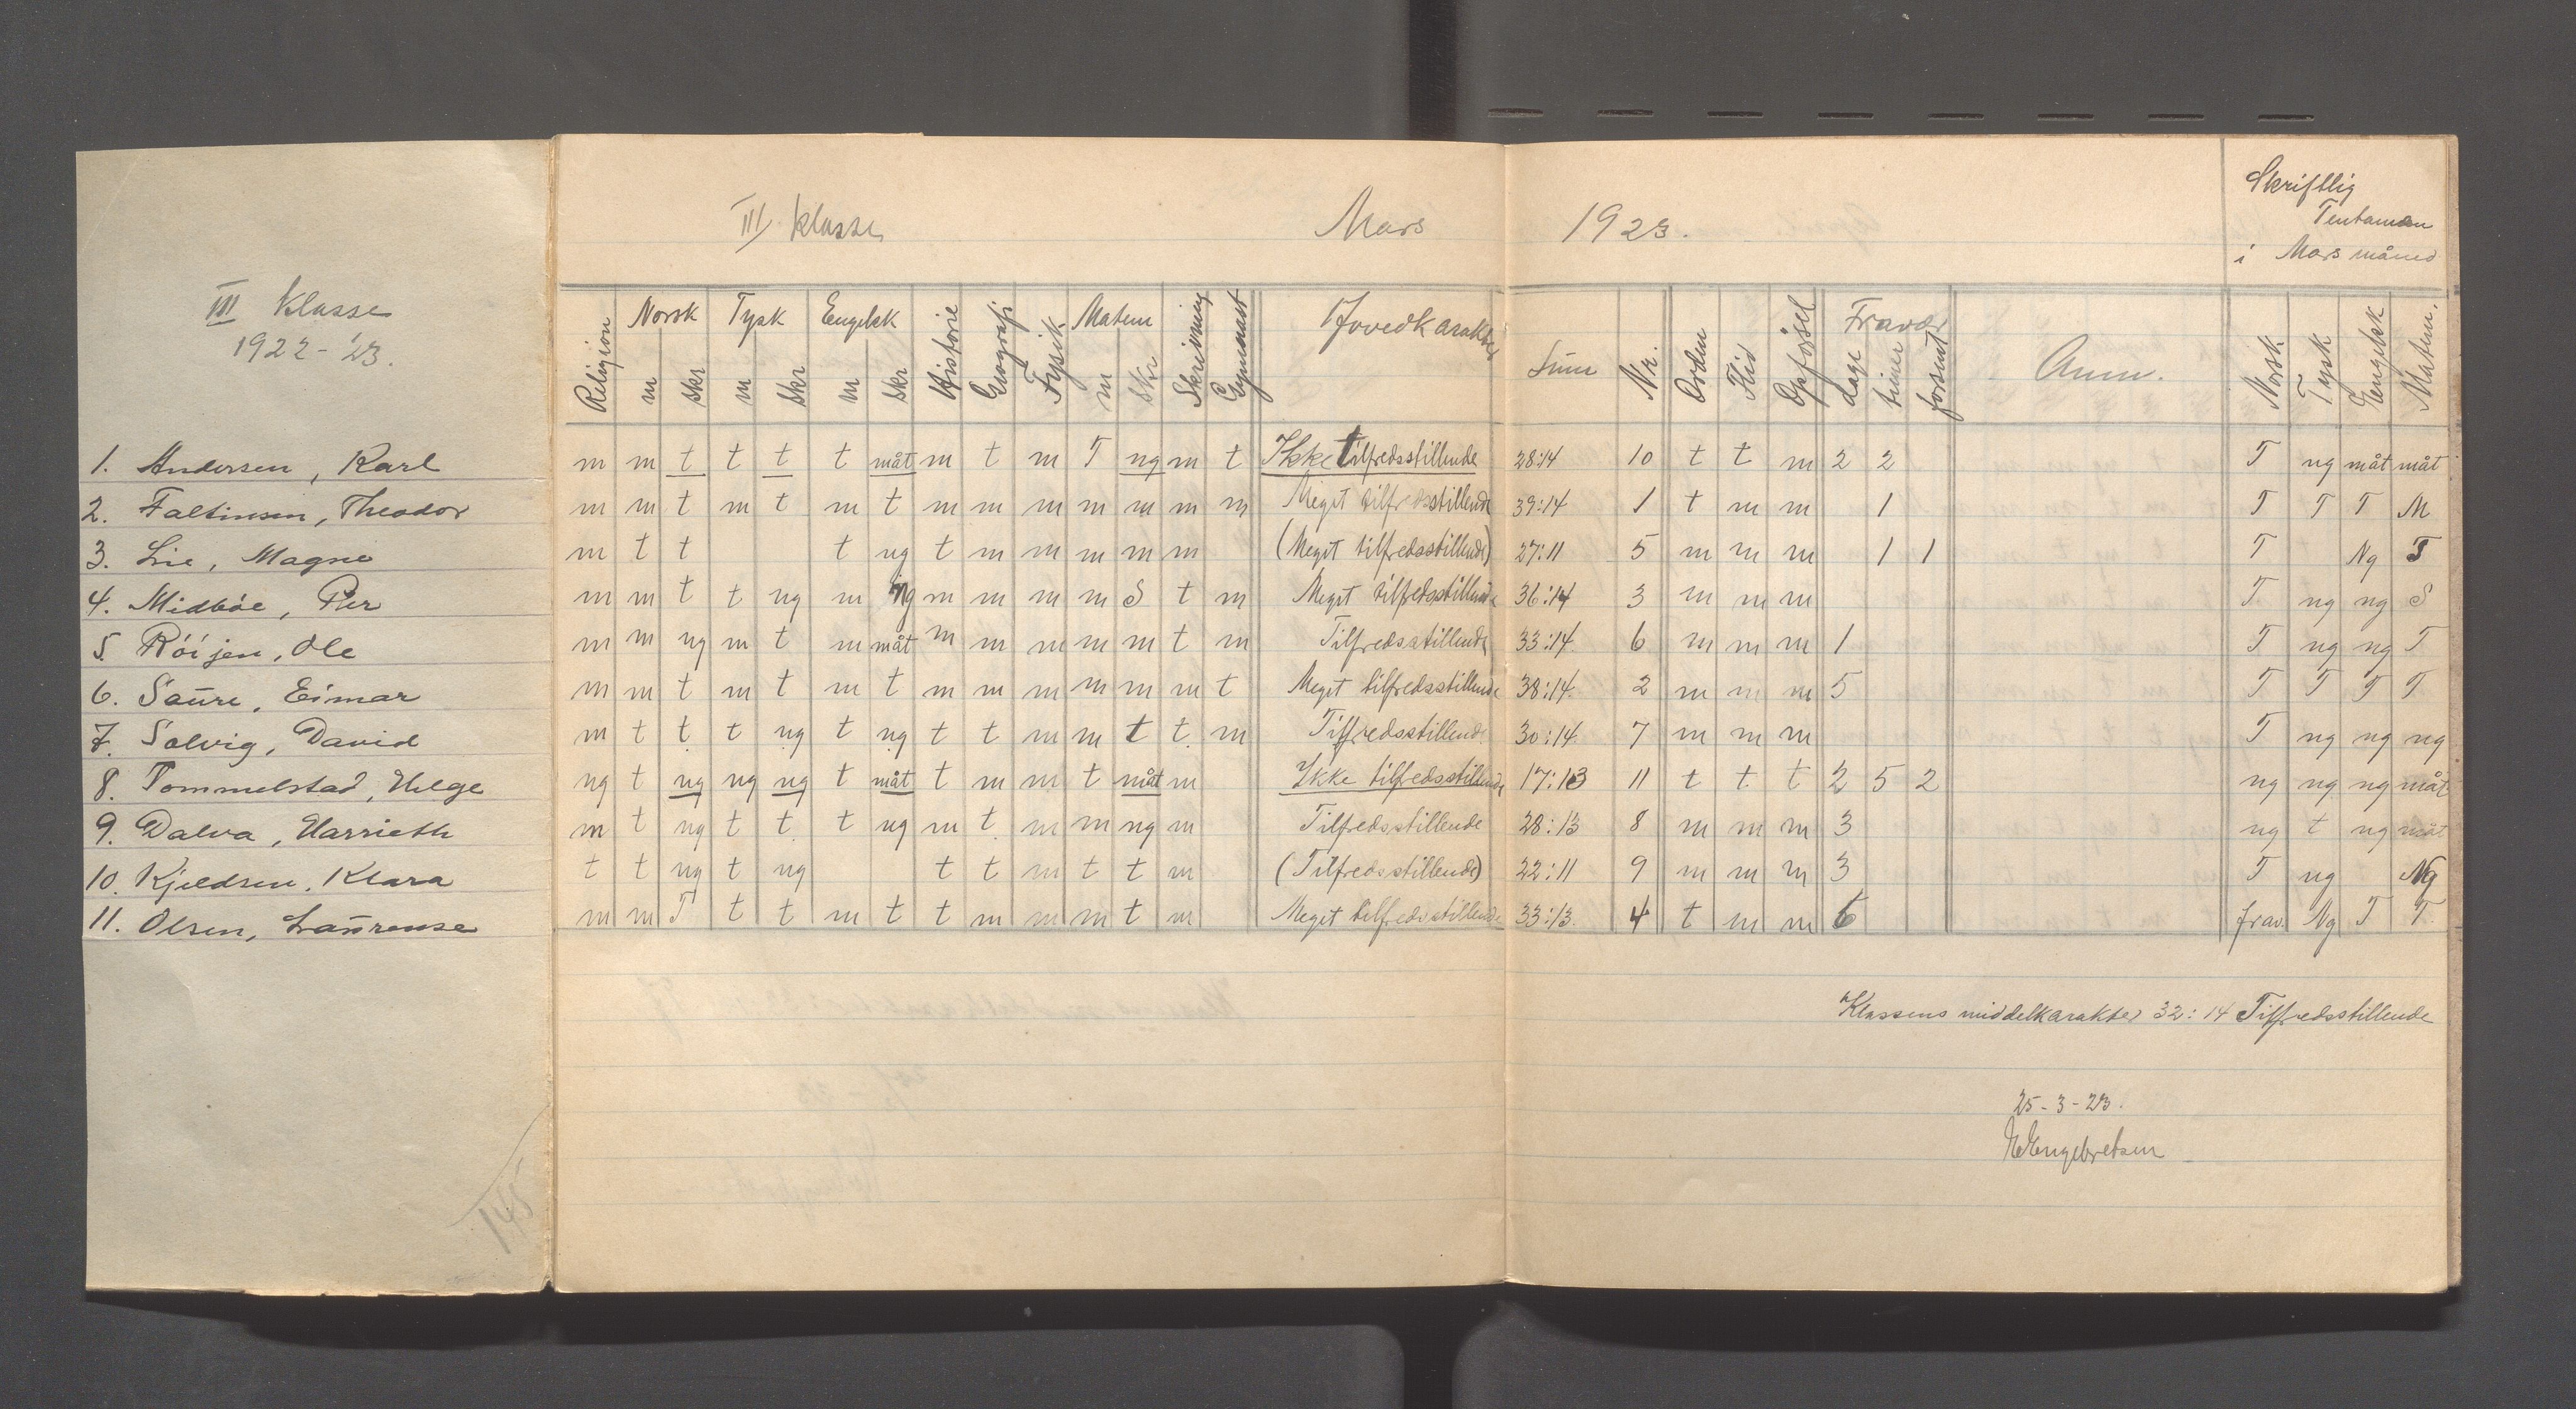 III Klasse
1922-'23.
1. Andersen, Karl
2. Faltinsen, Theodor
3. Lie, Magne
4. Midbøe, Per
5. Röijen, Ole
6. Saure, Eimar
7. Solvig, David
8. Tommelstad, Helge
9. Dalva, Harrieth
10. Kjeldsen, Klara
11. Olsen, Laurense
145
III klasse Mars 1923.
Skriftlig
Tentamen
i Mars måned
Religion Norsk Tysk Engelsk Historie Geografi Fysik Matem Skrivning Gymnast Hovedkarakter Sum Nr. Orden Flid Opførsel Fravær Anm. Norsk Tysk Engelsk Matem.
m skr m skr m skr m skr dage timer forsømt
m m t t t t måt m t m T ng m t Ikke tilfredsstillende 28:14 10 t t m 2 2 T ng måt måt
m m t m t m t m m m m m m m Meget tilfredsstillende 39:14 1 t m m 1 T T T M
m t t t ng t m m m m m (Meget tilfredsstillende) 27:11 5 m m m 1 1 T Ng T
m m t t ng m ng m m m m S t m Meget tilfredsstillende 36:14 3 m m m T ng ng S
m m ng m t m måt m m m m m t m Tilfredsstillende 33:14 6 m m m 1 T ng ng T
m m t m t m t m m m m m m t Meget tilfredsstillende 38:14 2 m m m 5 T T T T
m t t t ng t ng t t m m t t m Tilfredsstillende 30:14 7 m m m T ng ng ng
ng t ng ng ng t måt t m m t måt m Ikke tilfredsstillende 17:13 11 t t t 2 5 2 ng ng ng måt
m t ng t t t ng m t m m ng m Tilfredsstillende 28:13 8 m m m 3 ng t ng måt
t t ng t ng t t m t t m (Tilfredsstillende) 22:11 9 m m m 3 T ng Ng
m m T t t m t t m m m t m Meget tilfredsstillende 33:13. 4 t m m 6 frav. Ng T T
Klassens middelkarakter 32:14 Tilfredsstillende
25-3-23.
Engebretsen